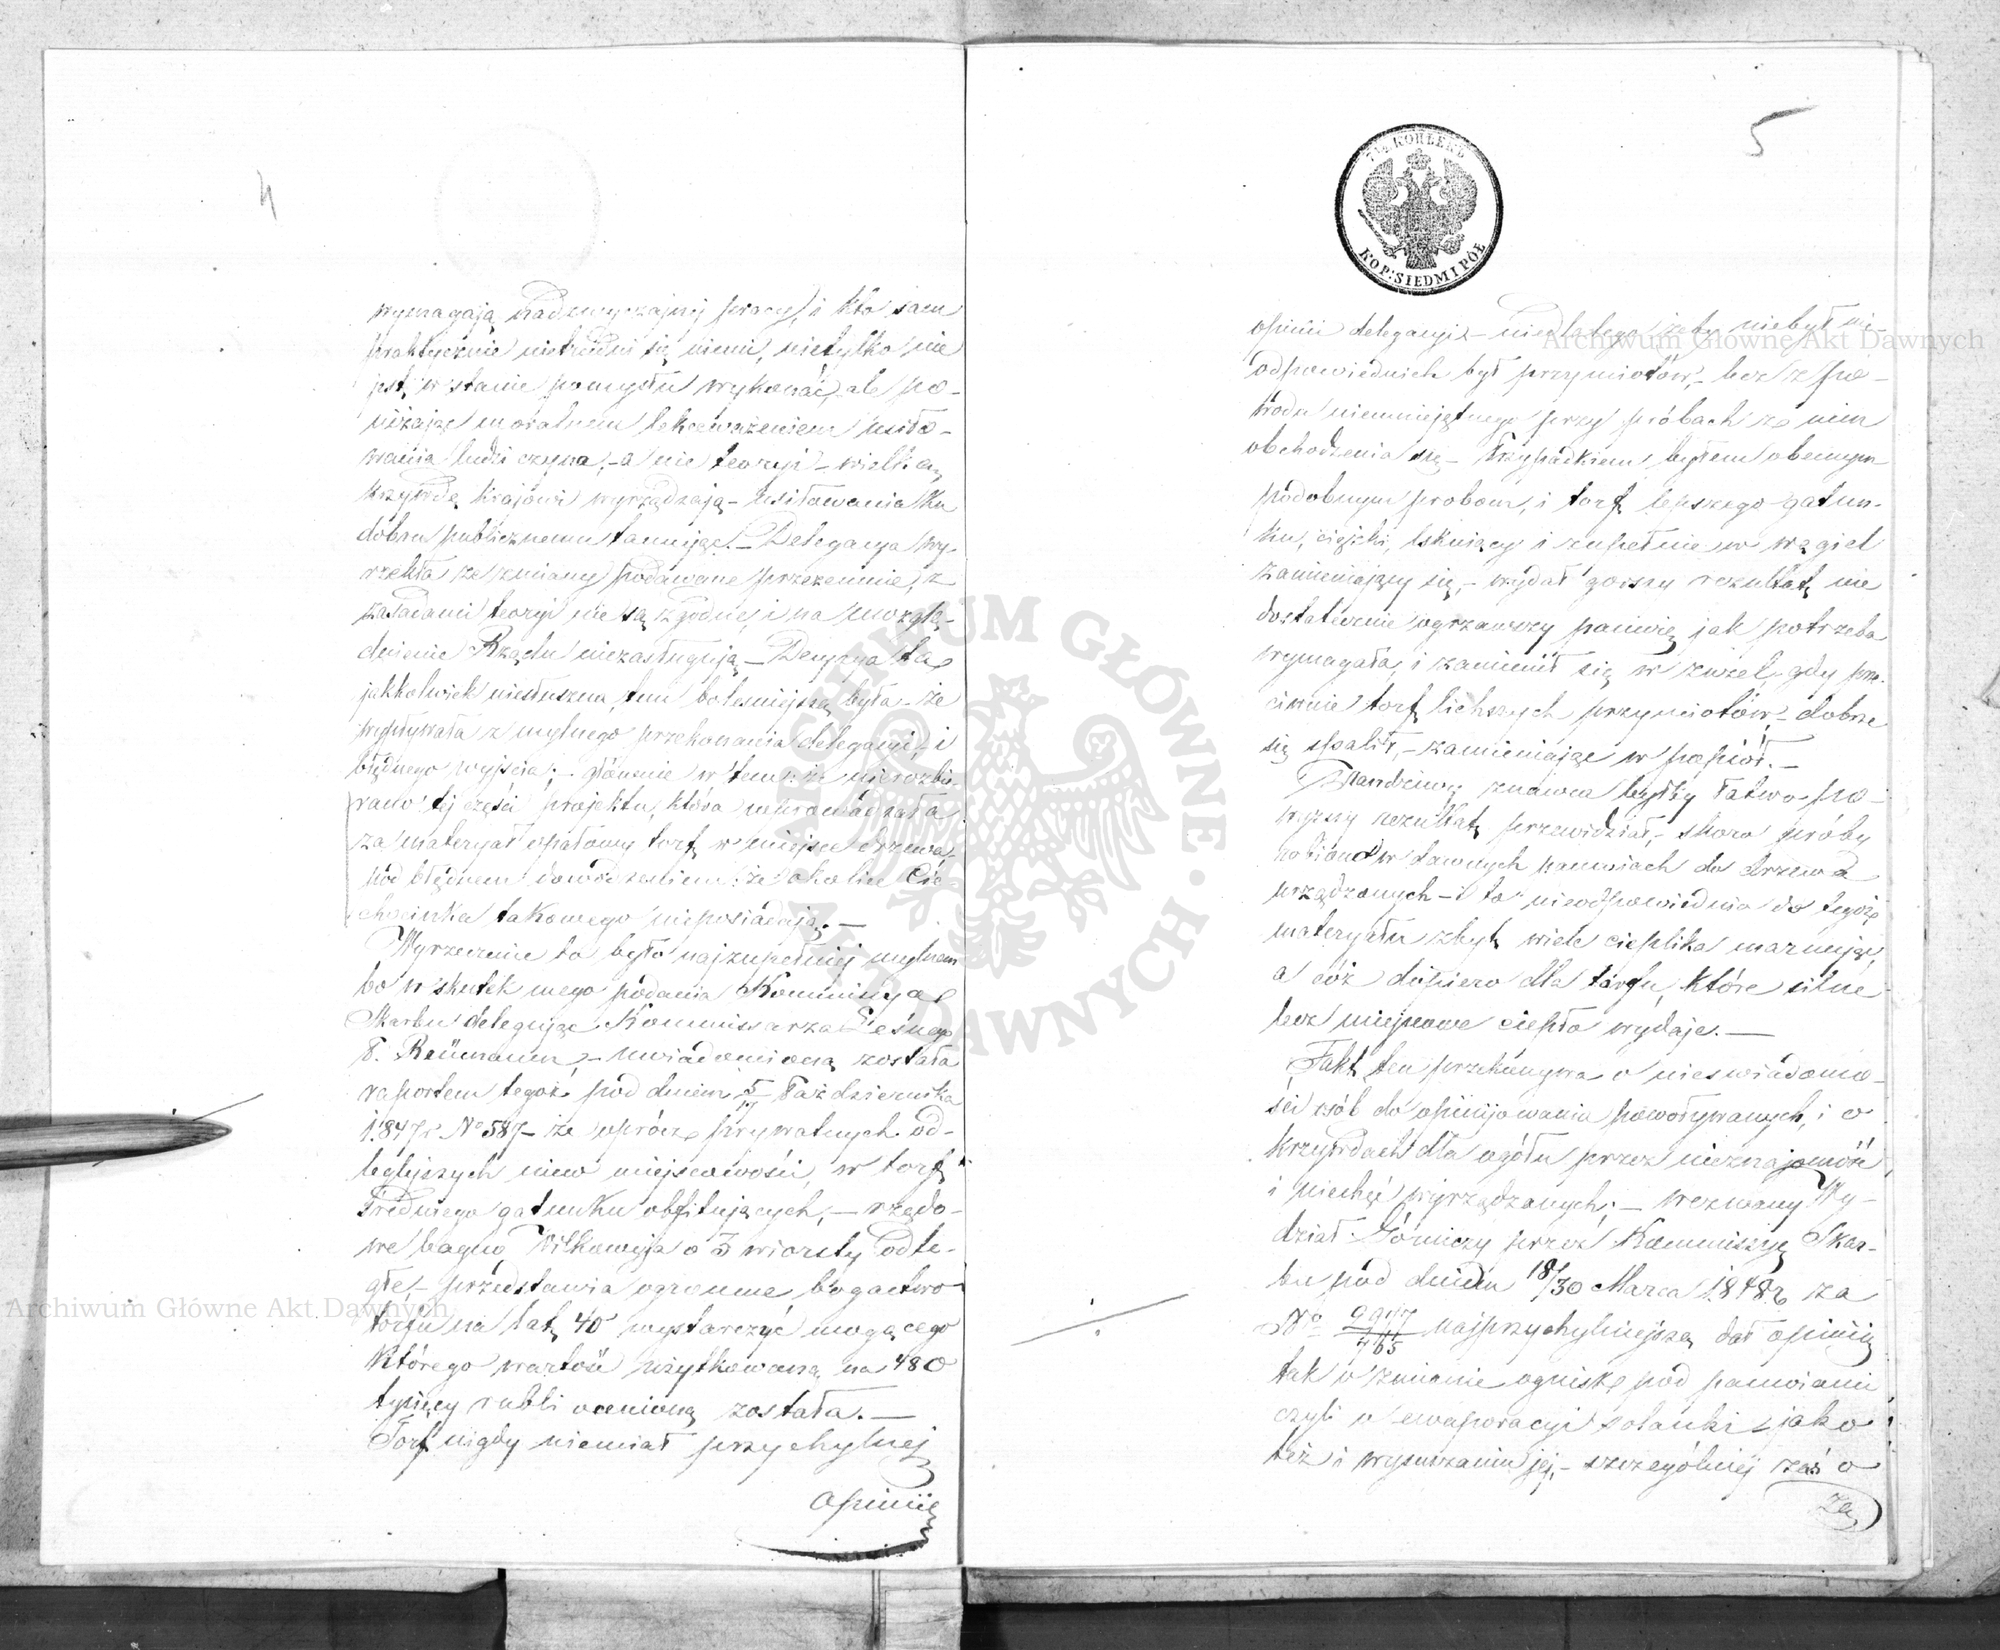 4
wymagają nadzwyczajnej pracy, i kto sam
praktycznie nietrudni się niemi, nietylko nie
jest w stanie pomysłu wykonać, ale po-
niżając moralnem lekceważeniem usiło-
wania ludzi czynu, - a nie teoryi - wielką
krzywdę krajowi wyrządzają - usiłowania ku
dobru publicznemu tamując. - Delegacya wy-
rzekła że zmiany podawane przezemnie, z
zasadami teoryi nie są zgodne, i na uwzglę-
dnienie Rządu niezasługują - Decyzya ta
jakkolwiek niesłuszna, tem boleśniejszą była - że
wypływała z mylnego przekonania delegacyi, i
błędnego wyjścia; - głównie w tem że nierozbie-
rano tej części projektu, która wprowadzała
za materyał opałowy torf w miejsce drzewa,
pod błędnem dowodzeniem: że okolice Cie-
chocinka takowego nieposiadają. -
Wyrzeczenie to było najzupełniej mylnem
bo w skutek mego podania Kommissya
Skarbu delegując Kommissarza Leśnego
P. Reümann, - uwiadomioną została
raportem tegoż pod dniem 5/17 Października
1847 r No 587 - że oprócz prywatnych od-
leglejszych miejscowości, w torf
średniego gatunku obfitujących, - rządo-
we bagno Wilkowyja o 3 wiorsty odle-
głe, - przedstawia ogromne bogactwo
torfu na lat 40 wystarczyć mogącego
którego wartość użytkowana na 480
tysięcy rubli ocenioną została. -
Torf nigdy niemiał przychylnej
opinii
5
7½ КОПѢЕКЪ
KOP: SIEDMI PÓŁ
opinii delegacyi - niedlatego żeby niebył
odpowiednich był przymiotów, - lecz z po-
wodu nieumiejętnego przy próbach z nim
obchodzenia się - Przypadkiem byłem obecnym
podobnym probom, i torf lepszego gatun-
ku, ciężki, lśkniący i zupełnie w węgiel
zamieniający się, - wydał gorszy rezultat nie
dostatecznie ogrzawszy panwię jak potrzeba
wymagała, i zamienił się w żużel, gdy prze-
ciwnie torf lichszych przymiotów - dobrze
się spalił, - zamieniając w popiół. -
Prawdziwy znawca byłby łatwo po-
wyższy rezultat przewidział, - skoro próby
robiono w dawnych panwiach do drzewa
urządzonych - i to nieodpowiednio do tegoż
materyału zbyt wiele cieplika marnując,
a cóż dopiero dla torfu, które silne
lecz miejscowe ciepło wydaje. -
Fakt ten przekonywa o nieświadomo-
ści osób do opinijowania powoływanych, i o
krzywdach dla ogółu przez nieznajomość
i niechęć wyrządzanych; - wezwany Wy-
dział Górniczy przez Kommissyę Skar-
bu pod dniem 18/30 Marca 1848 r za
No najprzychylniejszą dał opinię
tak o zmianie ognisk pod panwiami
czyli o ewaporacyi solanki - jako
też i wysuszaniu jej, - szczególniej zaś o
za
Archiwum Główne Akt Dawnych
Archiwum Główne Akt Dawnych
ARCHIWUM GŁÓWNE AKT DAWNYCH